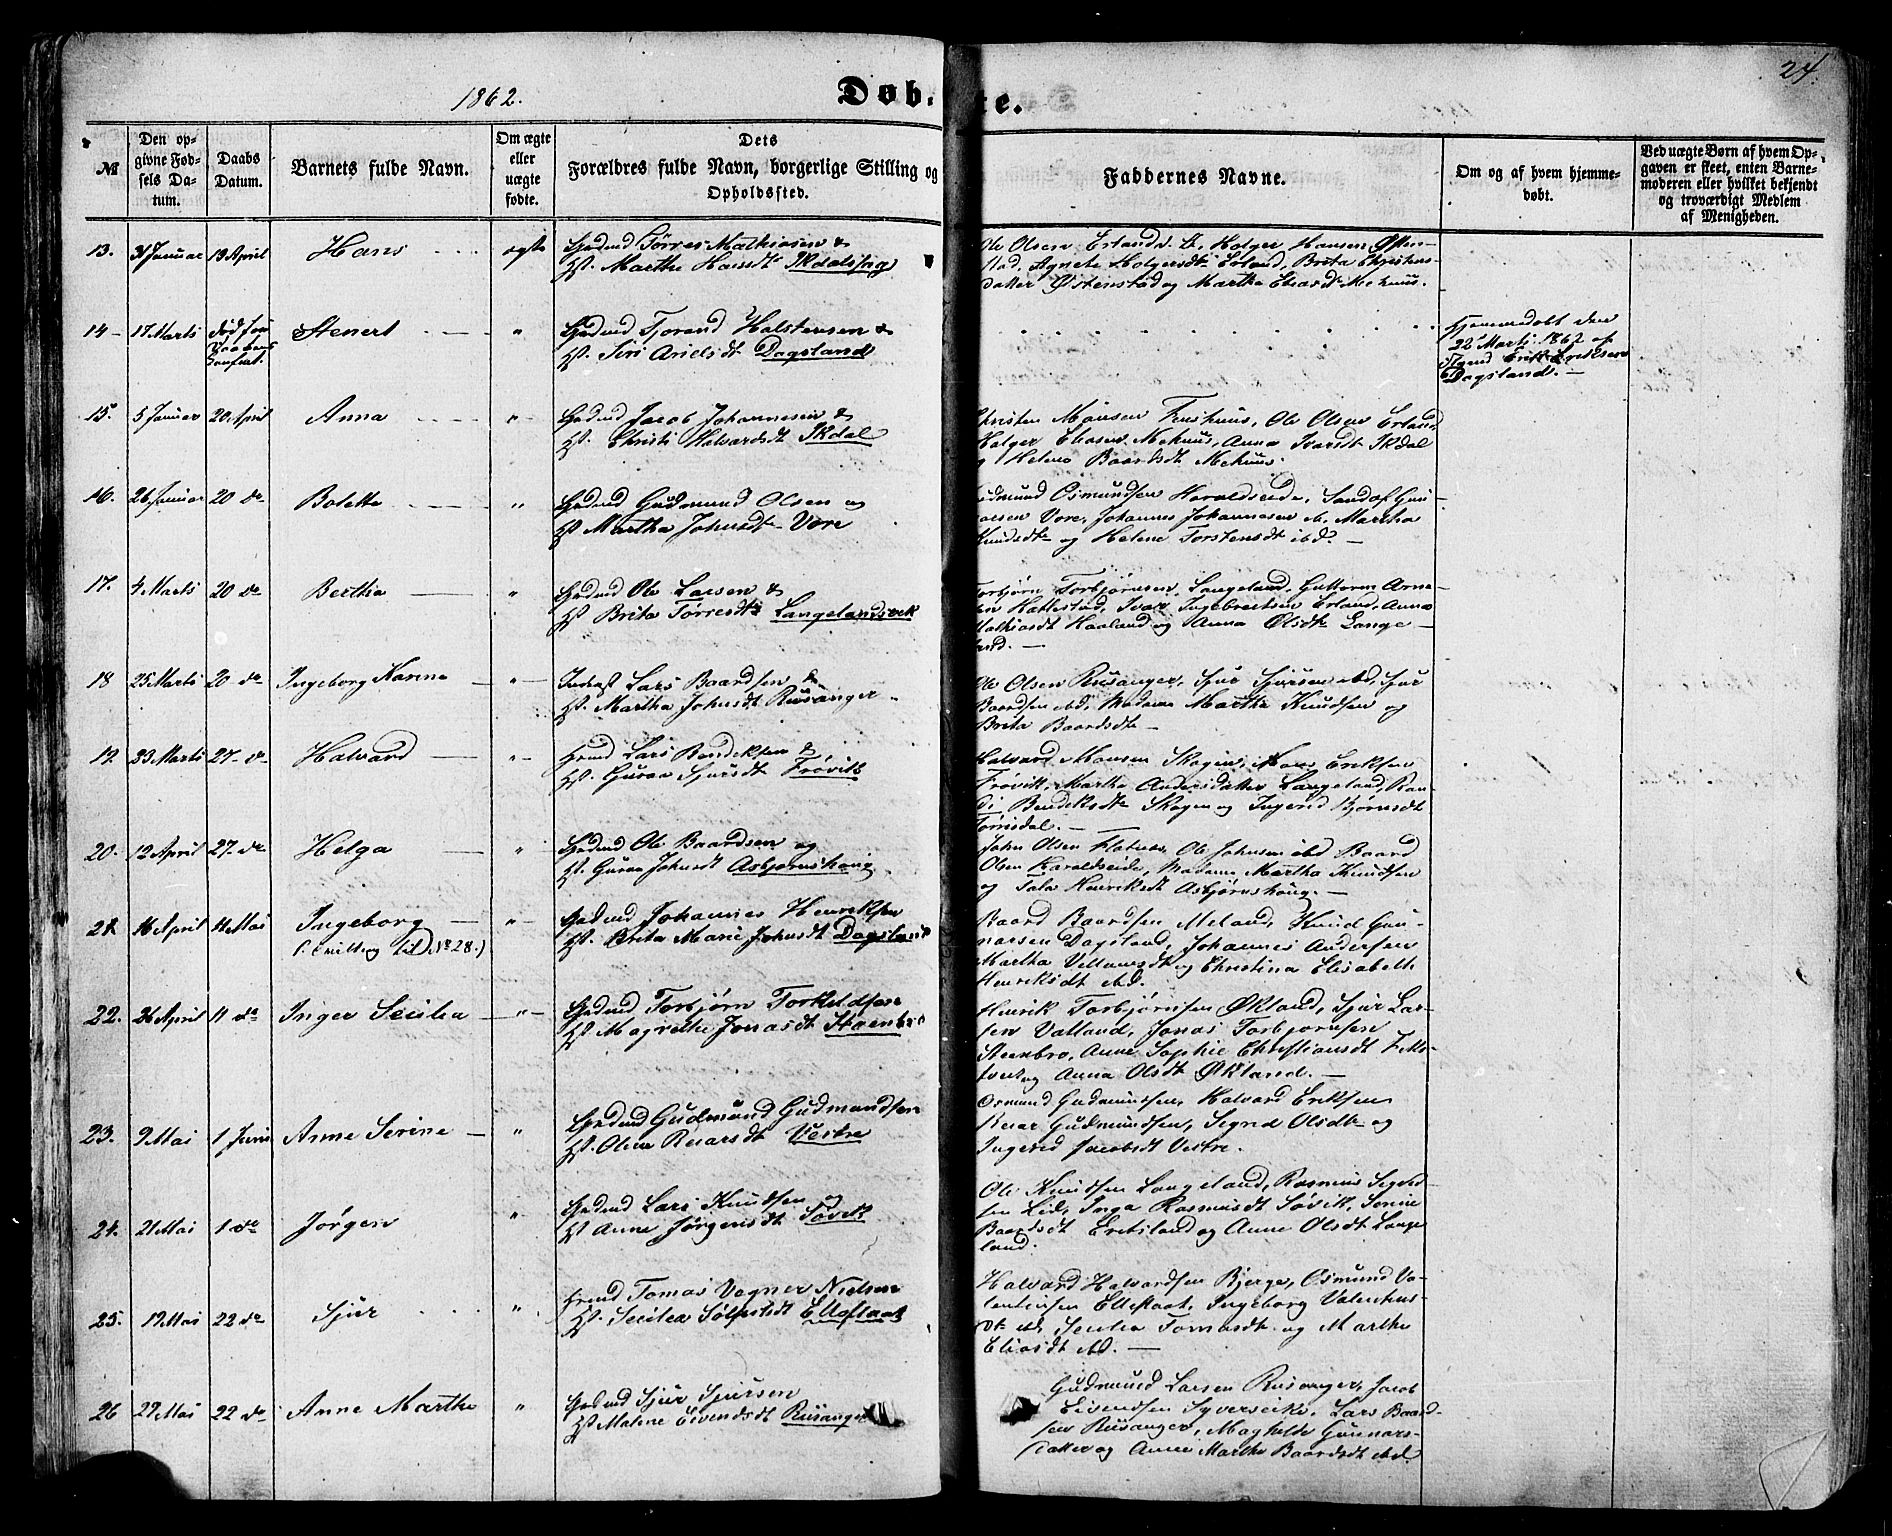 24.
1862.
Døb.
te.
№
Den op-
givne Fød-
sels Da-
tum.
Daabs
Datum.
Barnets fulde Navn.
Om ægte
eller
uægte
fødte.
Dets
Forældres fulde Navn, borgerlige Stilling og
Opholdssted.
Faddernes Navne.
Om og af hvem hjemme-
døbt.
Ved uægte Børn af hvem Op-
gaven er skeet, enten Barne-
moderen eller hvilket bekjendt
og troværdigt Medlem
af Menigheden.
13. 31 Januar 19 April Hans ægte Gedmd Tørres Mathiasen &
Hst. Marthe Hansdt
Ole Olsen Erland, Holger Hansen Østen-
stad, Agnete Holgersdt Erland, Brita Christens-
datter Østenstad og Martha Eliasdt Mehuus.
14 17 Marts Stenert " Gedmd Tjerand Halstensen &
Hst. Siri Arielsdt Dagsland
Hjemmedøbt den
22 Marts 1862 af
Erik Eriksen
Dagsland. —
15. 5 Januar 20 April Anna " Gedmd Jacob Johannesen &
Hst. Christi Halvardsdt Ikdal
Christen Monsen Ole Olsen Erland,
Holger Eliasen Mehuus, Anna Ivarsdt Ikdal
og Helene Baardsdt Mehuus.
16. 26 Januar 20 do Bolette " Gedmd Gudmund Olsen og
Hst Martha Johnsdt Vore
Gudmund Osmundsen Haraldseide,
Vore, Johannes Johannesen Martha
Knudsdt og Helene Torstensdt ibd. —
17. 4 Marts 20 do Bertha " Gedmd Ole Larsen &
Hst Brita Tørresdt Langelandsvik
Torbjørn Torbjørnsen Langeland, Guttorm Arne-
sen Hattestad, Ivar Ingebretsen Erland, Anna
Mathiasdt Haaland og Anna Olsdt Lange-
land. —
18 25 Marts 20 do Ingeborg Karine " Inderst Lars Baardsen &
Hst. Martha Johnsdt Rusanger
Ole Olsen Rusanger, Sjur Sjursen ibd, Sjur
Baardsen ibd, Madame Martha Knudsen og
Brita Baardsdt —
19. 23 Marts 27 do Halvard " Lars Bendiksen &
Hst. Guroe Sjursdt Frøvik
Halvard Monsen Skogen, Eriksen
Frøvik, Martha Andersdatter Langeland, Ran-
di Bendiksdt Skogen og Ingerid Bjørnsdt
Tørrisdal. —
20. 12 April 27 do Helga " Gedmd Ole Baardsen og
Hst. Guroe Johnsdt Asbjørnshoug
John Olsen Ole Johnsen ibd Baard
Olsen Haraldseide, Madame Martha Knudsen
og Tala Henriksdt Asbjørnshoug. —
21. 16 April 11 Mai Ingeborg " Gedmd Johannes Henriksen
(Tvilling til No 28.) Hst. Brita Marie Johnsdt Dagsland
Baard Baardsen Meland, Knud Gun-
narsen Dagsland, Johannes Andersen
Martha Villumsdt og Christina Elisabeth
Henriksdt ibd.
22. 26 April 11 do Inger Secilia " Gedmd Torbjørn Torkildsen
Hst Magrethe Jonasdt Steenbro
Henrik Torbjørnsen Økland, Sjur Lar-
sen Valland, Jonas Torbjørnsen
Steenbro, Anne Sophie Christiansdt
og Anna Olsdt Økland. —
23. 9 Mai 1 Juni Anne Serine " Gedmd Gudmund Gudmundsen
Hst. Olena Reiarsdt Vestre
Osmund Gudmundsen, Halvard Eriksen
Reiar Gudmundsen, Segred Olsdt og
Ingered Jacobsdt Vestre.
24. 21 Mai 1 do Jørgen " Gedmd Lars Knudsen og
Hst Anne Jørgensdt Søvik
Ole Knudsen Langeland, Rasmus
sen Lid, Inga Rasmusdt Søvik,
Baardsdt Eritsland og Anne Olsdt Lange-
land.
25. 19 Mai 22 do Sjur " Tomas Vegner Nielsen
Hst. Secilea Ellestaat
Halvard Halvardsen Bjerge, Osmund Va-
lentinsen Ellestaat, Ingeborg Valentins-
dt ibd, Secilia Tomasdt og Marthe
Eliasdt ibd. —
26 27 Mai 22 do Anne Marthe " Gedmd Sjur Sjursen
Hst Malene Eivendsdt Rusanger
Gudmund Larsen Rusanger, Jacob
Eivendsen Syversvike, Lars Baard-
sen Rusanger, Maghilde Gunnars-
datter og Anne Marthe Baardsdt ibd.